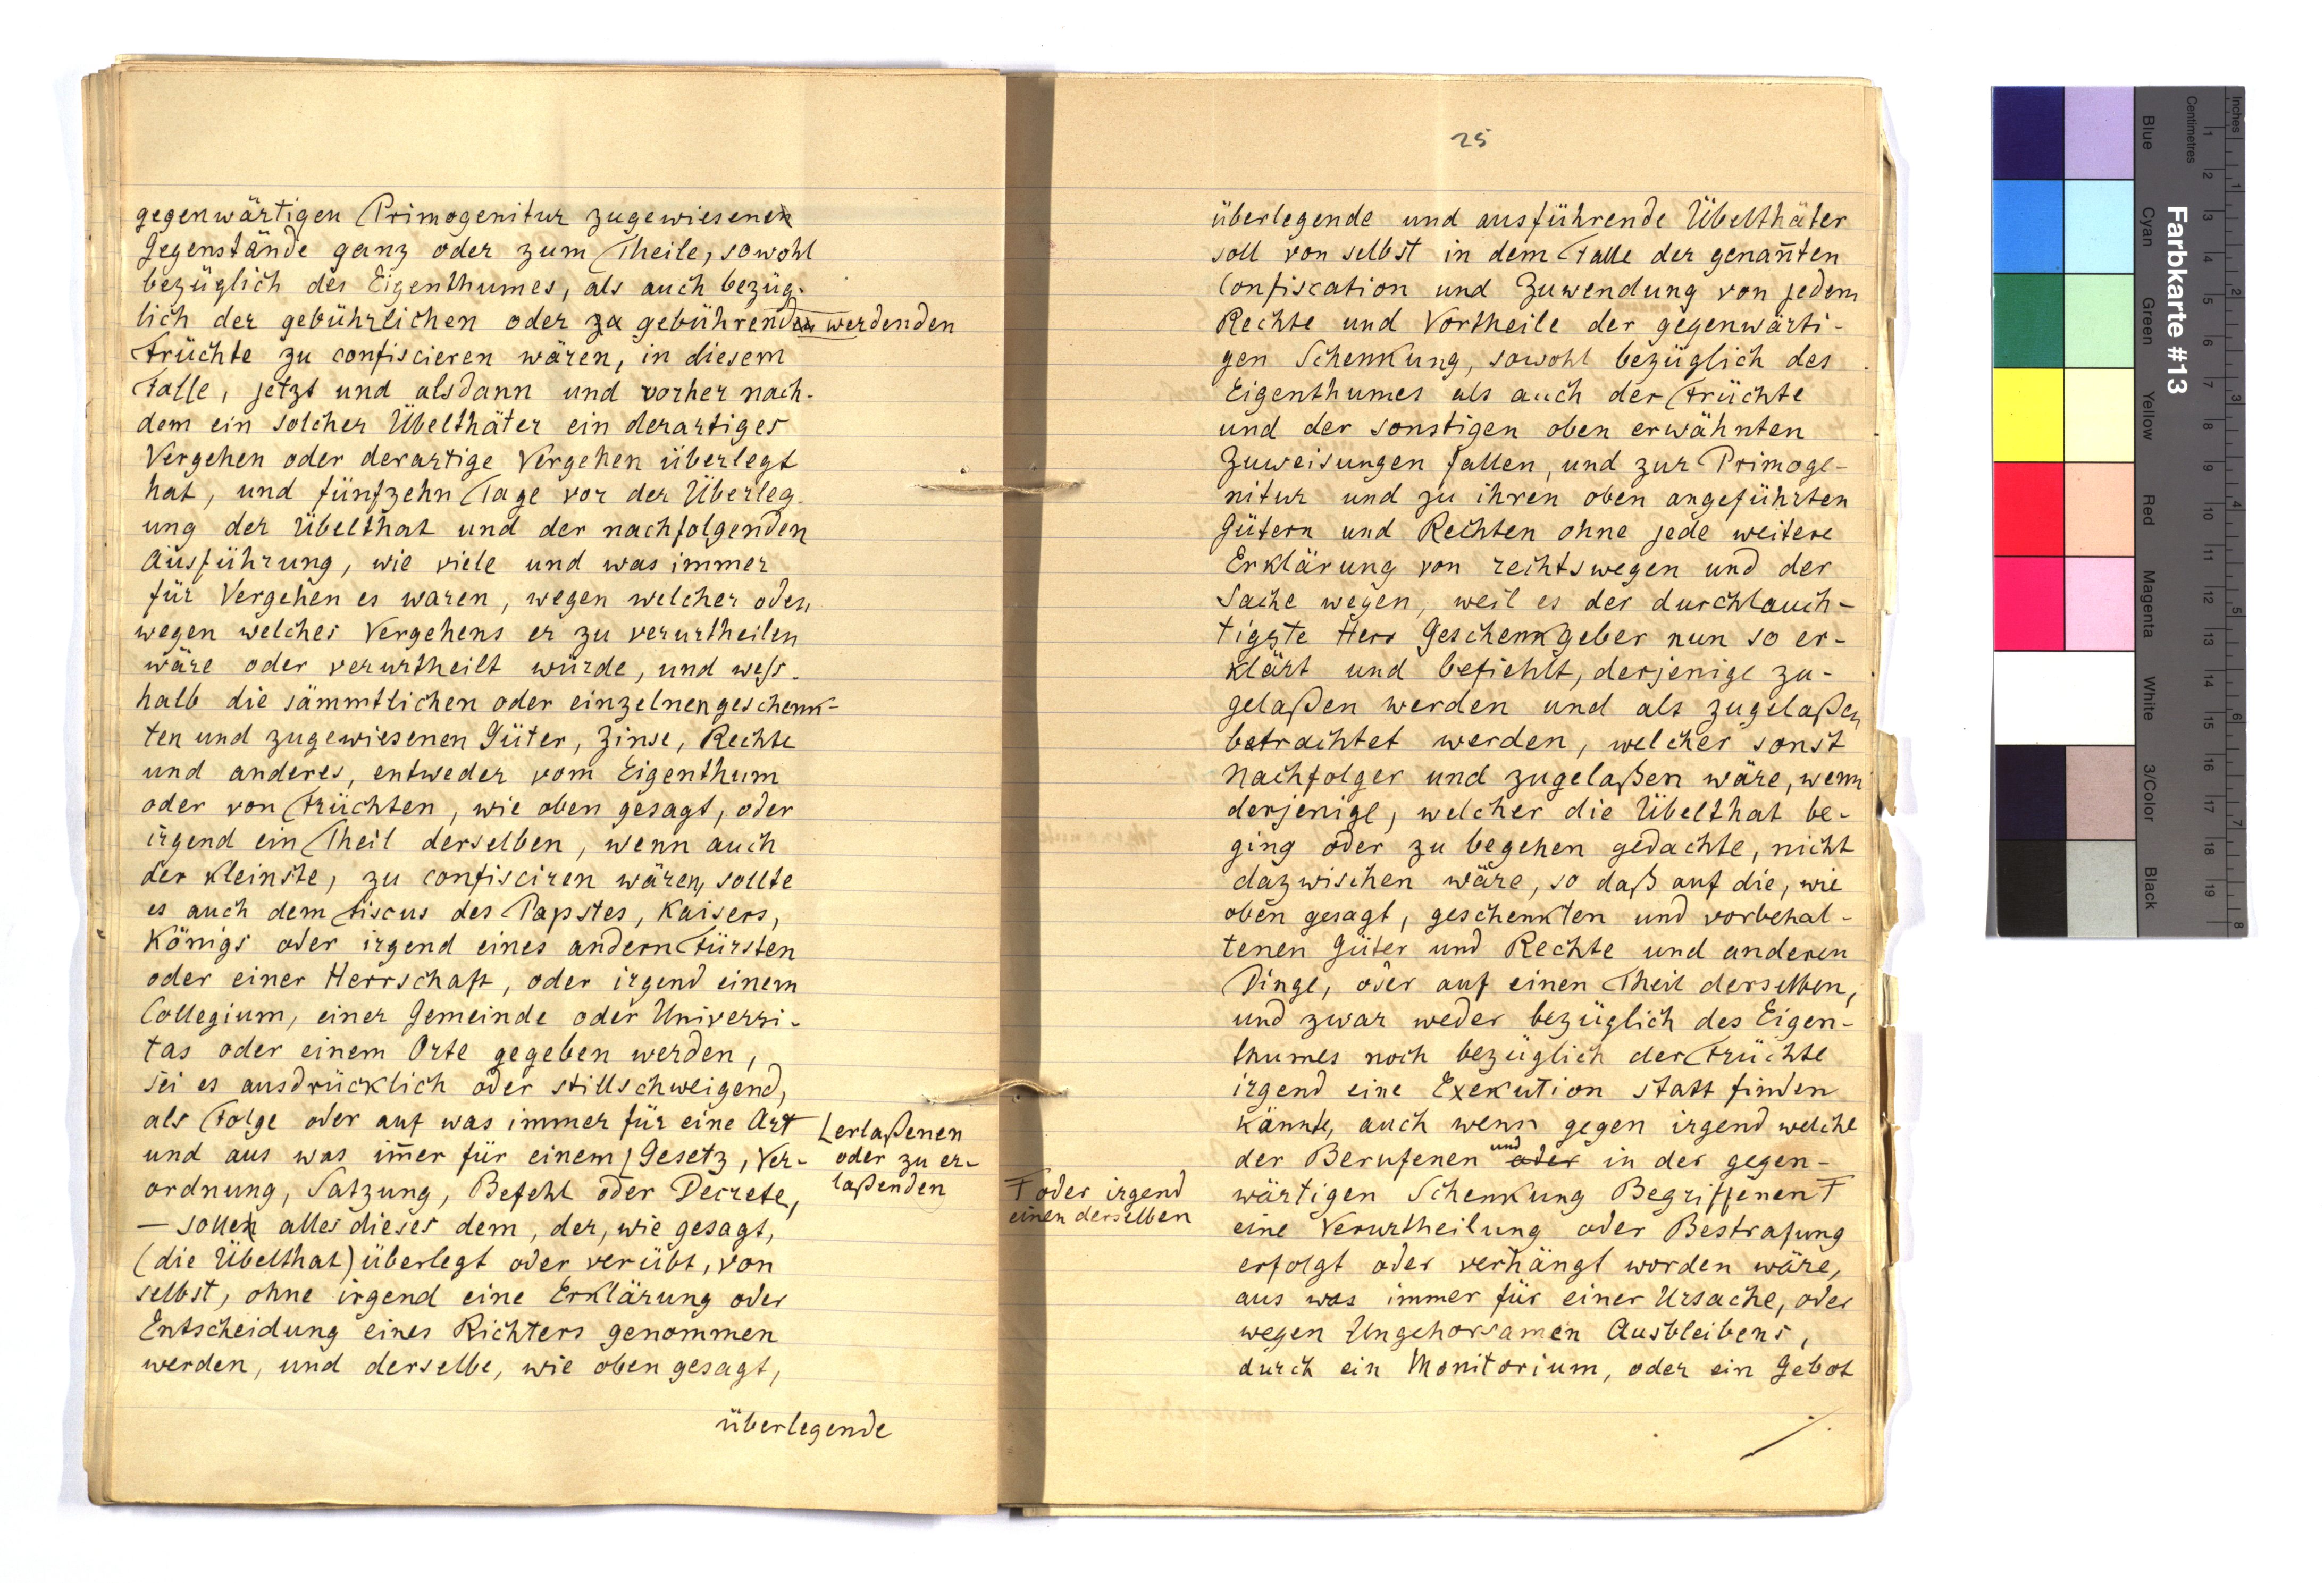 gegenwärtigen Primogenitur zugewiesenen
Gegenstände ganz oder zum Theile, sowohl
bezüglich des Eigenthumes, als auch bezüg-
lich der gebührlichen oder zu gebührenden werdenden
Früchte zu confiscieren wären, in diesem
Falle, jetzt und alsdann und vorher nach-
dem ein solcher Übelthäter ein derartiges
Vergehen oder derartige Vergehen überlegt
hat, und fünfzehn Tage vor der Überleg-
ung der Übelthat und der nachfolgenden
Ausführung, wie viele und was immer
für Vergehen es waren, wegen welcher oder
wegen welches Vergehens er zu verurtheilen
wäre oder verurtheilt würde, und weß-
halb die sämmtlichen oder einzelnen geschenk-
ten und zugewiesenen Güter, Zinse, Rechte
und anderes, entweder vom Eigenthum
oder von Früchten, wie oben gesagt, oder
irgend ein Theil derselben, wenn auch
der kleinste, zu confisciren wären, sollte
es auch dem Fiscus des Papstes, Kaisers,
Königs oder irgend eines andern Fürsten
oder einer Herrschaft, oder irgend einem
Collegium, einer Gemeinde oder Universi-
tas oder einem Orte gegeben werden,
sei es ausdrücklich oder stillschweigend,
als Folge oder auf was immer für eine Art
und aus was im̄er für einem Gesetz, Ver-
ordnung, Satzung, Befehl oder Decrete,
— sollen alles dieses dem, der, wie gesagt,
(die Übelthat) überlegt oder verübt, von
selbst, ohne irgend eine Erklärung oder
Entscheidung eines Richters genommen
werden, und derselbe, wie oben gesagt,
überlegende
erlaßenen
oder zu er-
laßenden
25
überlegende und ausführende Übelthäter
soll von selbst in dem Falle der genan̄ten
Confiscation und Zuwendung von jedem
Rechte und Vortheile der gegenwärti-
gen Schenkung, sowohl bezüglich des
Eigenthumes als auch der Früchte
und der sonstigen oben erwähnten
Zuweisungen fallen, und zur Primoge-
nitur und zu ihren oben angeführten
Gütern und Rechten ohne jede weitere
Erklärung von rechtswegen und der
Sache wegen, weil es der durchlauch-
tigste Herr Geschenkgeber nun so er-
klärt und befiehlt, derjenige zu-
gelaßen werden und als zugelaßen
betrachtet werden, welcher sonst
Nachfolger und zugelaßen wäre, wenn
derjenige, welcher die Übelthat be-
ging oder zu begehen gedachte, nicht
dazwischen wäre, so daß auf die, wie
oben gesagt, geschenkten und vorbehal-
tenen Güter und Rechte und anderen
Dinge, oder auf einen Theil derselben,
und zwar weder bezüglich des Eigen-
thumes noch bezüglich der Früchte
irgend eine Exekution statt finden
könnte, auch wenn gegen irgend welche
der Berufenen und oder in der gegen-
wärtigen Schenkung Begriffenen F
eine Verurtheilung oder Bestrafung
erfolgt oder verhängt worden wäre,
aus was immer für einer Ursache, oder
wegen Ungehorsamen Ausbleibens,
durch ein Monitorium, oder ein Gebot
F oder irgend
einen derselben
Farbkarte #13
Inches
Centimetres
Blue
Cyan
Green
Yellow
Red
Magenta
White
3/Color
Black
1 2 3 4 5 6 7 8 9 10 11 12 13 14 15 16 17 18 19
1 2 3 4 5 6 7 8